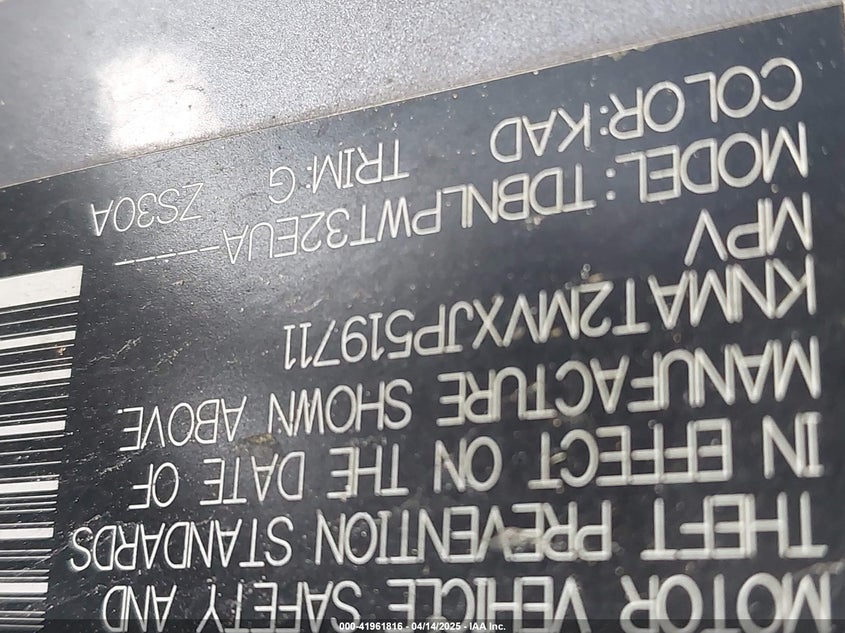 MOTOR VEHICLE SAFETY AND
THEFT PREVENTION STANDARDS
IN EFFECT ON THE DATE OF
MANUFACTURE SHOWN ABOVE.
KNMAT2MVXJP519711
MPV
MODEL: TDBNLPWT32EUA----- ZS30A
COLOR:KAD TRIM:G
000-41961816 - 04/14/2025 - IAA Inc.